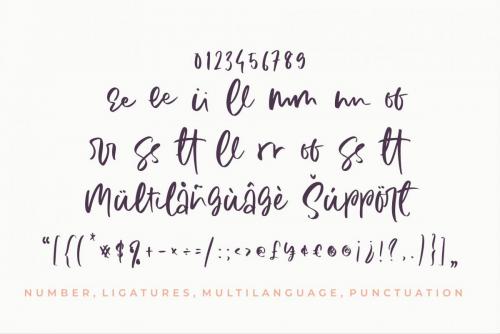 0123456789
Ee ee ii ll mm nn oo
rr ss tt ll rr oo ss tt
Mültilåñgùâgè Šúppört
“[{(*$%+-×÷=/:;<>
!?,.)}]„
NUMBER, LIGATURES, MULTILANGUAGE, PUNCTUATION